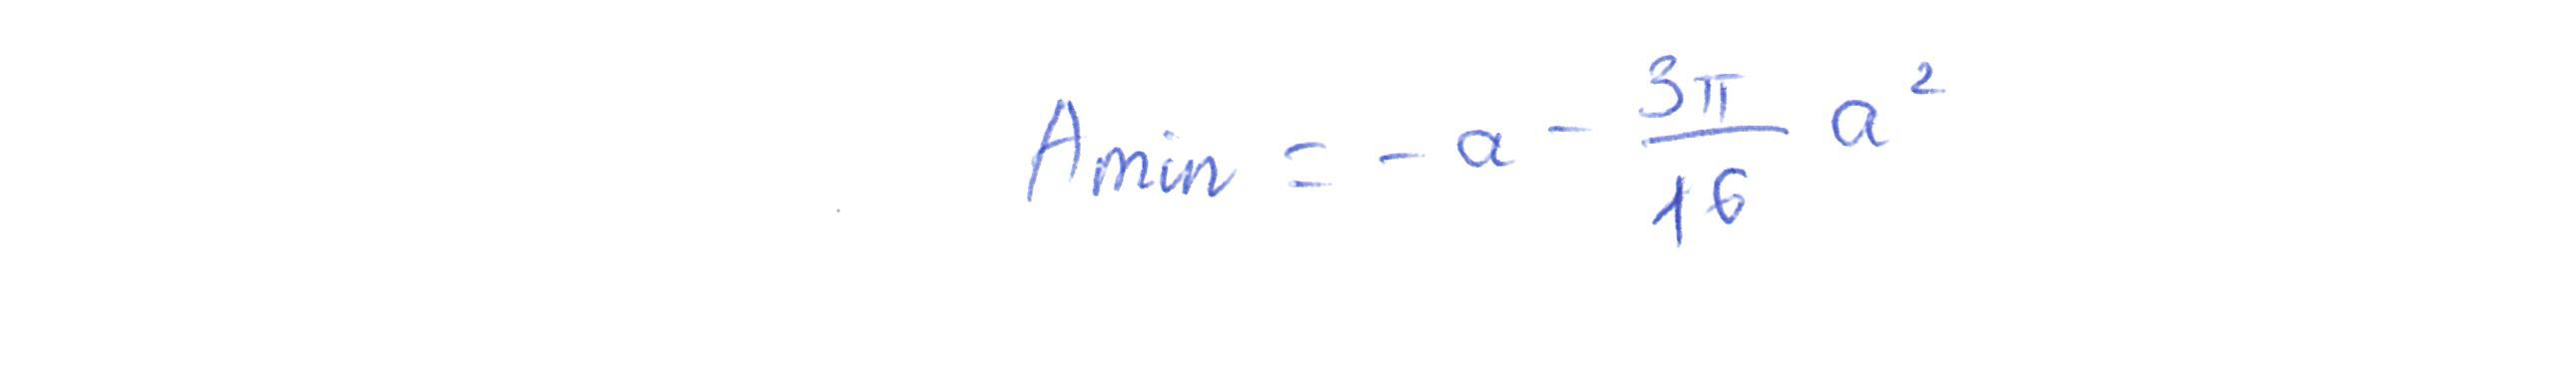 Amin = - a - 3π/16 a²